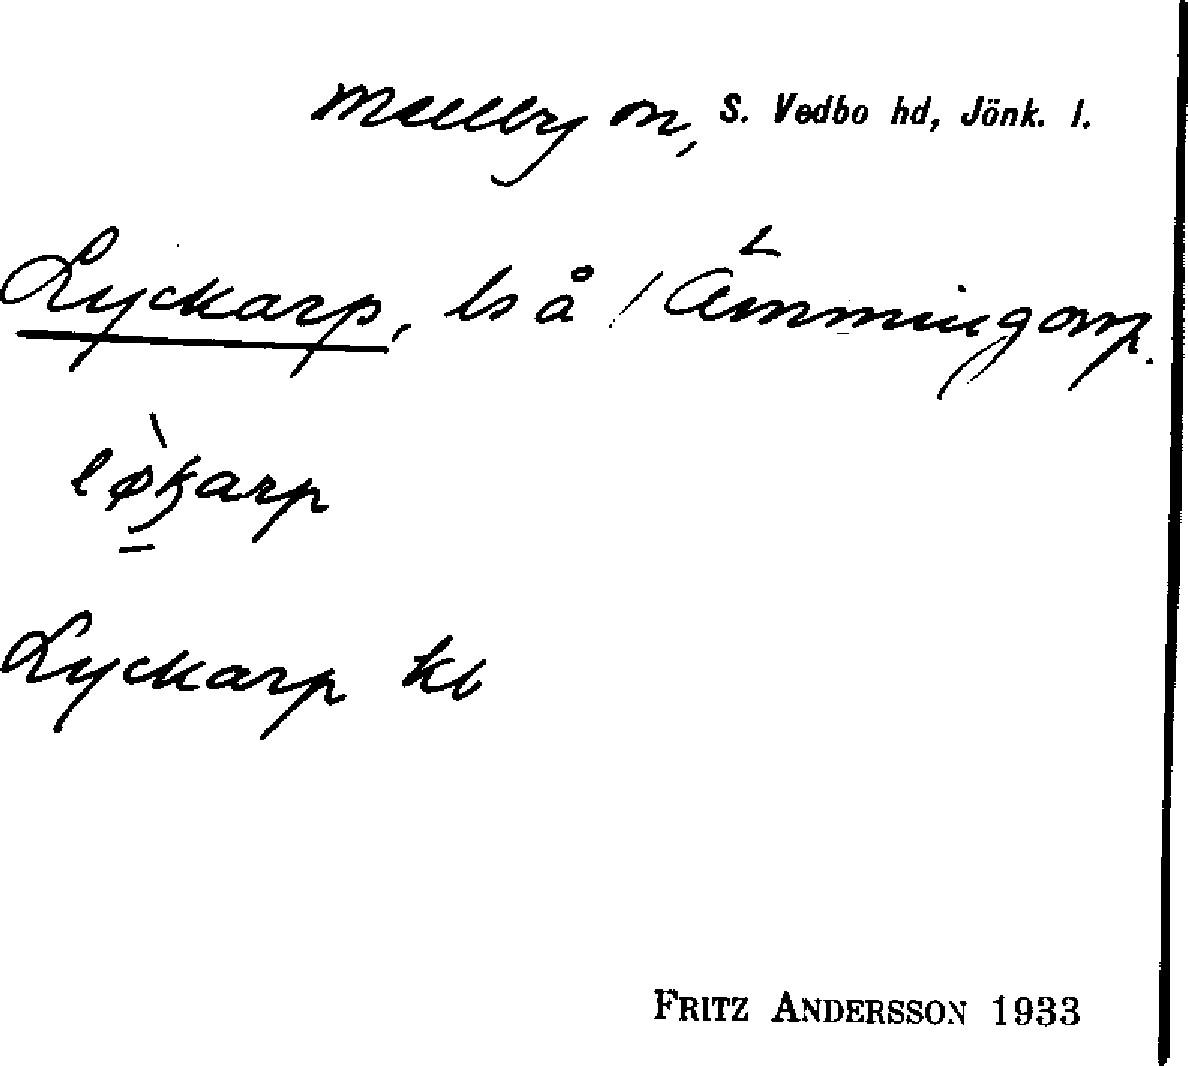 Mellby sn, S. Vedbo hd, Jönk. l.
Lyckarp, ls å Ämmingarp.
løkarp
Lyckarp kb
FRITZ ANDERSSON 1933